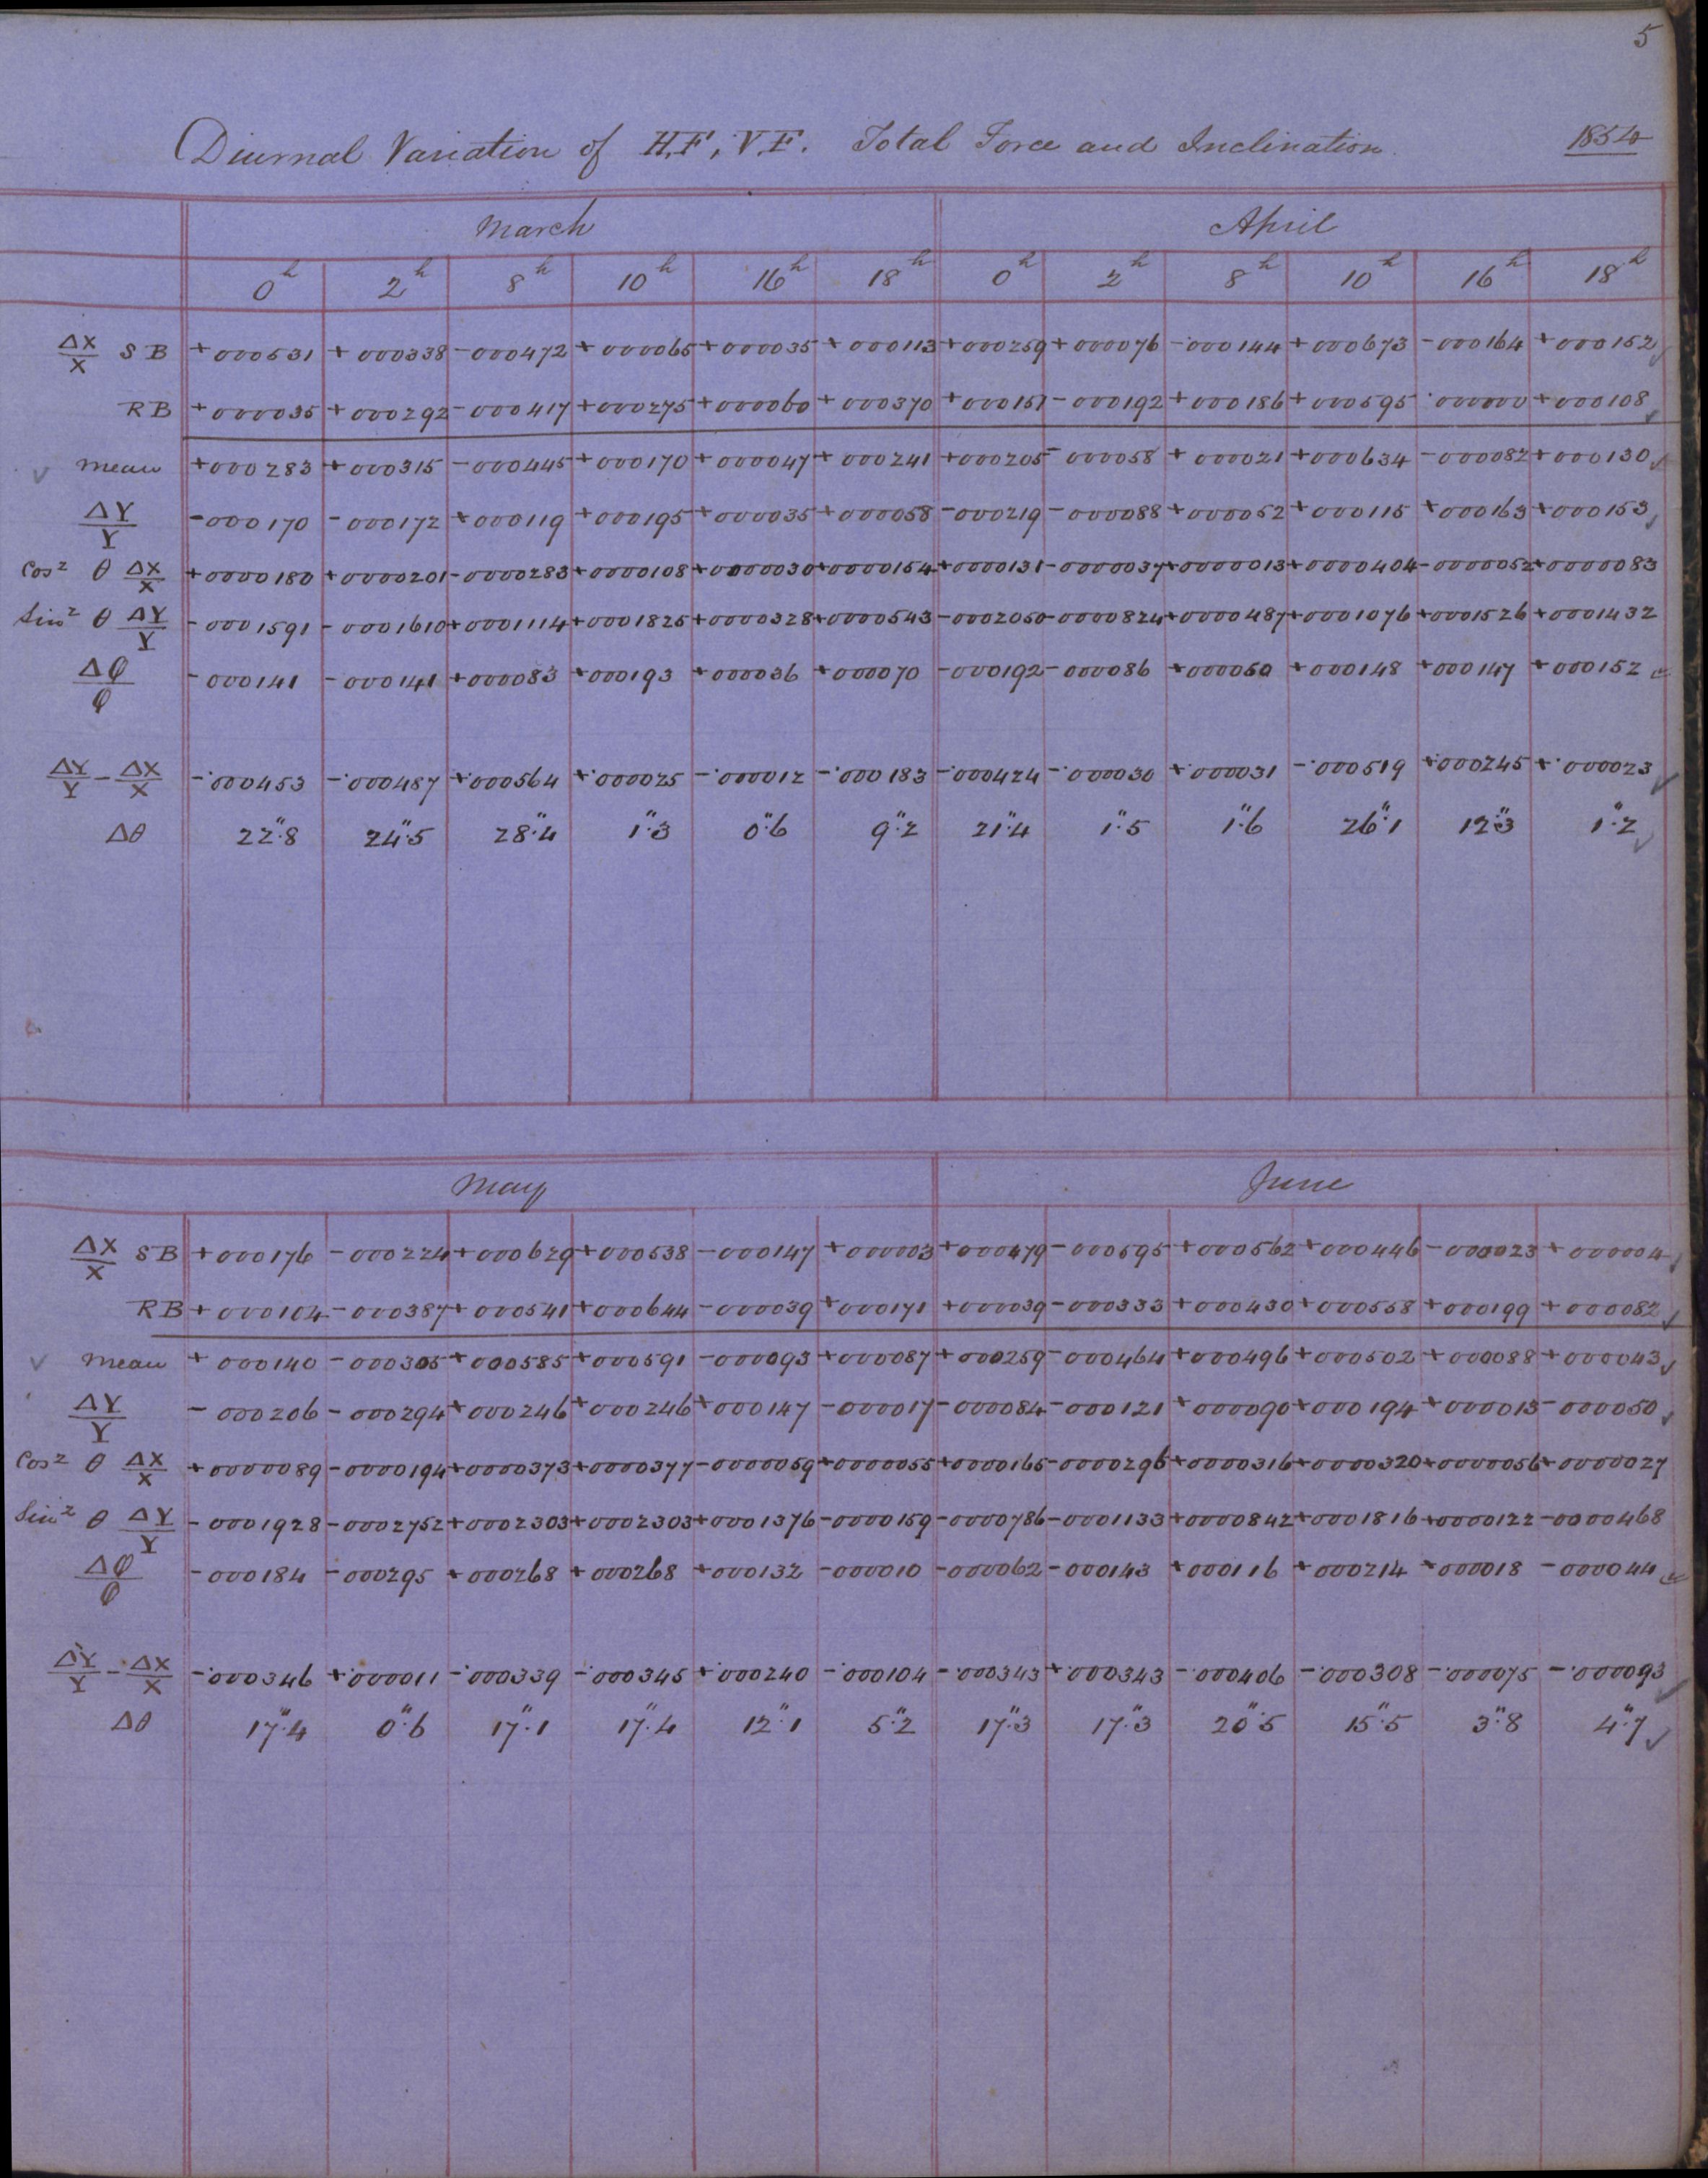 5
Diurnal Variation of H.F, V.F. Total Force and Inclination. 1854
March April
0h 2h 8h 10h 16h 18h 0h 2h 8h 10h 16h 18h
ΔX/X SB +000531 +000338 -000472 +000065 +000035 +000113 +000259 +000076 -000144 +000673 -000164 +000152
RB +000035 +000292 -000417 +000275 +000060 +000370 +000151 -000192 +000186 +000595 .000000 +000108
Mean +000283 +000315 -000445 +000170 +000047 +000241 +000205 -000058 +000021 +000634 -000082 +000130
ΔY/Y -000170 -000172 +000119 +000195 +000035 +000058 -000219 -000088 +000052 +000115 +000163 +000153
Cos² θ ΔX/X +0000180 +0000201 -0000283 +0000108 +0000030 +0000154 +0000131 -0000037 +0000013 +0000404 -0000052 +0000083
Sin² θ ΔY/Y -0001591 -0001610 +0001114 +0001825 +0000328 +0000543 -0002050 -0000824 +0000487 +0001076 +0001526 +0001432
Δφ/φ -000141 -000141 +000083 +000193 +000036 +000070 -000192 -000086 +000050 +000148 +000147 +000152
ΔY/Y - ΔX/X -.000453 -.000487 +.000564 +.000025 -.000012 -.000183 -.000424 -.000030 +.000031 -.000519 +.000245 +.000023
Δθ 22".8 24".5 28".4 1".3 0".6 9".2 21".4 1".5 1".6 26".1 12".3 1".2
May June
ΔX/X SB +000176 -000224 +000629 +000538 -000147 +000003 +000479 -000595 +000562 +000446 -000023 +000004
RB +000104 -000387 +000541 +000644 -000039 +000171 +000039 -000333 +000430 +000558 +000199 +000082
Mean +000140 -000305 +000585 +000591 -000093 +000087 +000259 -000464 +000496 +000502 +000088 +000043
ΔY/Y -000206 -000294 +000246 +000246 +000147 -000017 -000084 -000121 +000090 +000194 +000013 -000050
Cos² θ ΔX/X +0000089 -0000194 +0000373 +0000377 -0000059 +0000055 +0000165 -0000296 +0000316 +0000320 +0000056 +0000027
Sin² θ ΔY/Y -0001928 -0002752 +0002303 +0002303 +0001376 -0000159 -0000786 -0001133 +0000842 +0001816 +0000122 -0000468
Δφ/φ -000184 -000295 +000268 +000268 +000132 -000010 -000062 -000143 +000116 +000214 +000018 -000044
ΔY/Y - ΔX/X -.000346 +.000011 -.000339 -.000345 +.000240 -.000104 -.000343 +.000343 -.000406 -.000308 -.000075 -.000093
Δθ 17".4 0".6 17".1 17".4 12".1 5".2 17".3 17".3 20".5 15".5 3".8 4".7